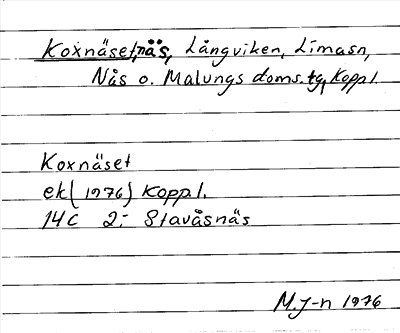 Koxnäset, näs, Långviken, Limasn,
Nås o. Malungs doms. tg, Koppl.
Koxnäset
ek (1976) Koppl.
14C 2:- Stavåsnäs
M.J-n 1976